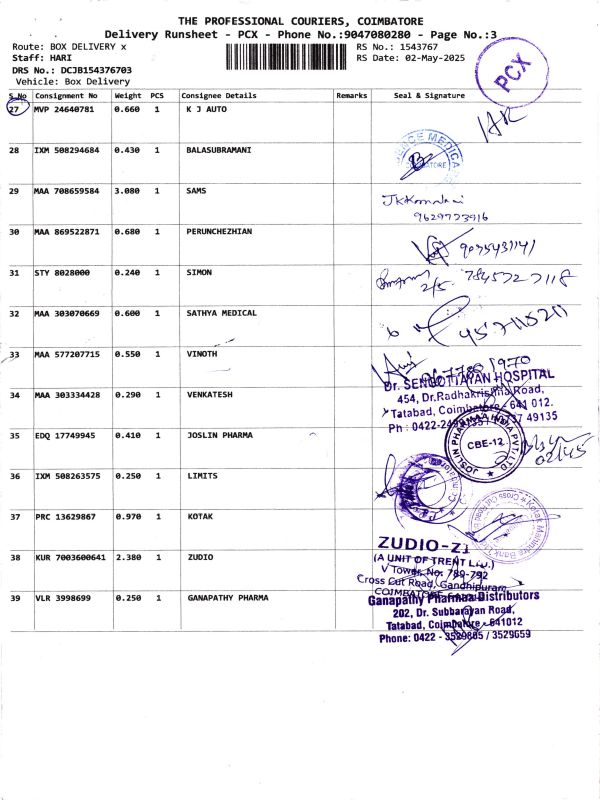 THE PROFESSIONAL COURIERS, COIMBATORE
Delivery Runsheet - PCX - Phone No.:9047080280 - Page No.:3
Route: BOX DELIVERY x
RS No.: 1543767
Staff: HARI
RS Date: 02-May-2025
DRS No.: DCJB154376703
Vehicle: Box Delivery
PCX
S.No Consignment No Weight PCS Consignee Details Remarks Seal & Signature
27 MVP 24640781 0.660 1 K J AUTO
28 IXM 508294684 0.430 1 BALASUBRAMANI
29 MAA 708659584 3.080 1 SAMS
9629773916
30 MAA 869522871 0.680 1 PERUNCHEZHIAN
9075431141
31 STY 8028000 0.240 1 SIMON
2/5
32 MAA 303070669 0.600 1 SATHYA MEDICAL
33 MAA 577207715 0.550 1 VINOTH
34 MAA 303334428 0.290 1 VENKATESH
Dr. SENGOTTAIYAN HOSPITAL
454, Dr.Radhakrishna Road,
Tatabad, Coimbatore - 641 012.
35 EDQ 17749945 0.410 1 JOSLIN PHARMA
JOSLIN PHARMAA INDIA PVT. LTD
CBE-12.
36 IXM 508263575 0.250 1 LIMITS
37 PRC 13629867 0.970 1 KOTAK
Kotak Mahindra Bank
38 KUR 7003600641 2.380 1 ZUDIO
ZUDIO-Z1
(A UNIT OF TRENT LTD.)
V Tower, No: 789-792
Cross Cut Road, Gandhipuram,
39 VLR 3998699 0.250 1 GANAPATHY PHARMA
Ganapathy Pharmaa Distributors
202, Dr. Subbarayan Road,
Tatabad, Coimbatore - 641012
Phone: 0422 - 3529865 / 3529659